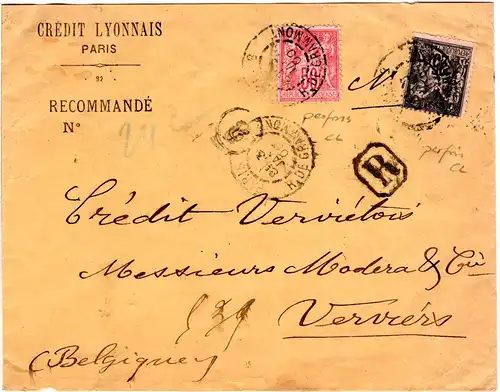 CRÉDIT LYONNAIS
PARIS
92
RECOMMANDÉ
N°
perfins
CL
perfins
CL
R
R. DE GRAMMONT
Crédit Verviétois
Messieurs Modera & Cie
Verviérs
(Belgique)